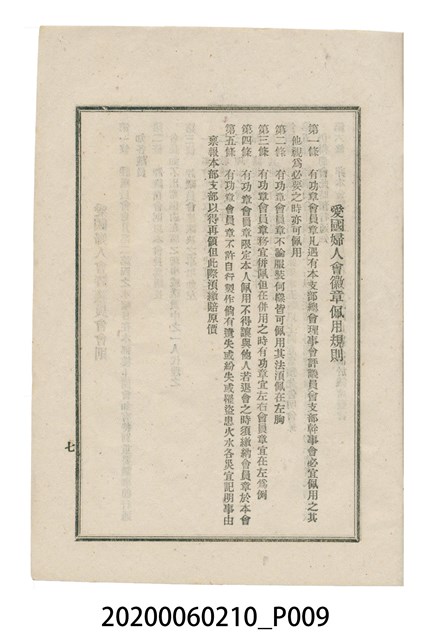 愛國婦人會徽章佩用規則
第一條　有功章會員章凡遇有本支部總會理事會評議員會支部幹事會必宜佩用之其
他視爲必要之時亦可佩用
第二條　有功章會員章不論服裝何樣皆可佩用其法須佩在左胸
第三條　有功章會員章務宜併佩但在併用之時有功章宜在右會員章宜在左爲例
第四條　有功章會員章限定本人佩用不得讓與他人若退會之時須繳納會員章於本會
第五條　有功章會員章不許自行製作倘有遺失或紛失或罹盜患火水各災宜記明事由
稟報本部支部以得再領但此際須繳賠原價
七
20200060210_P009